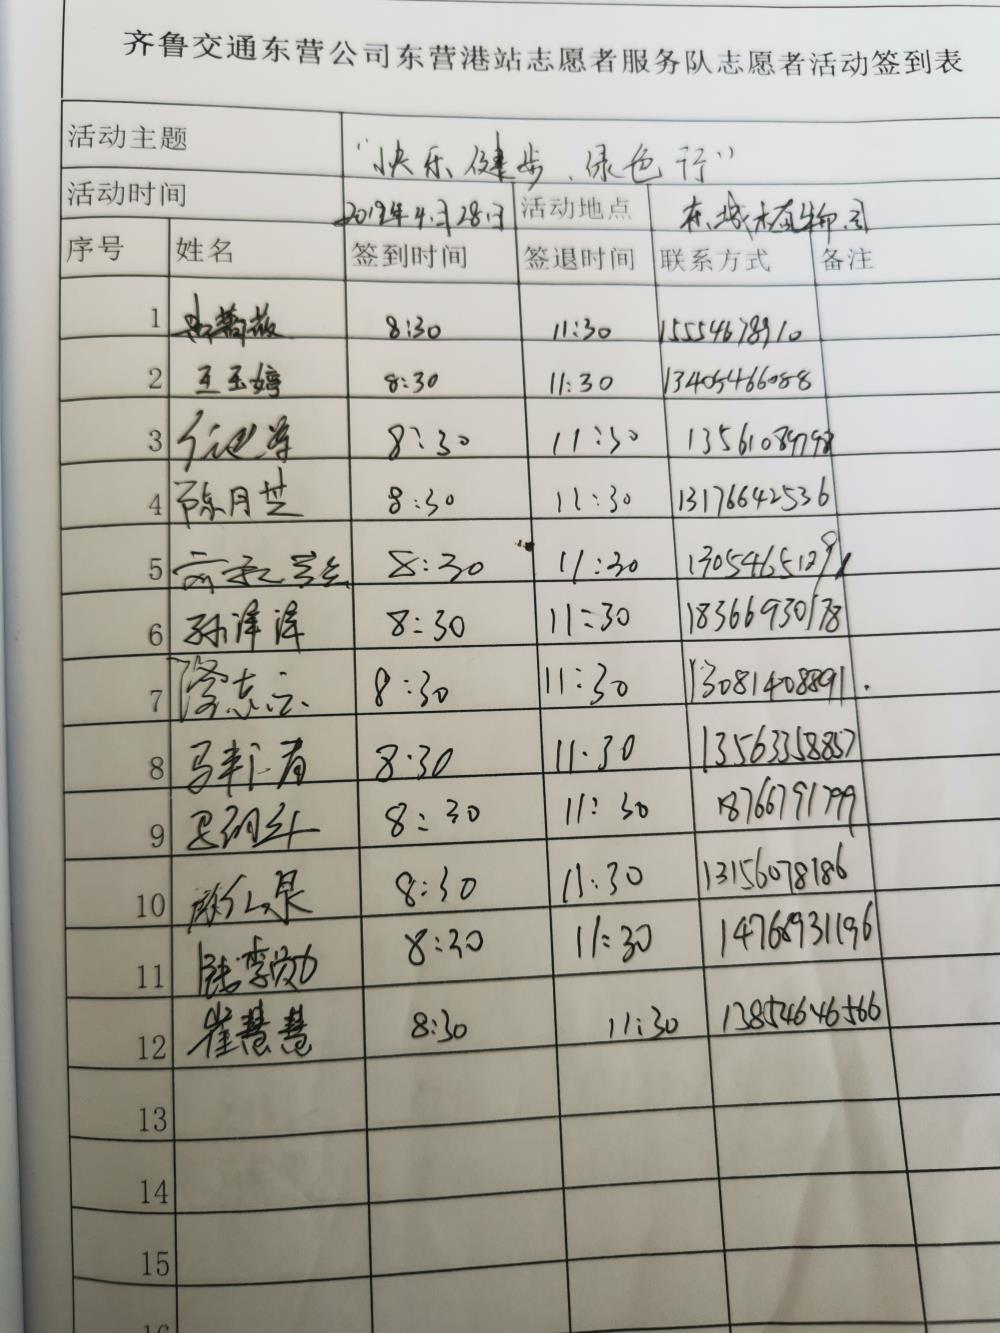 齐鲁交通东营公司东营港站志愿者服务队志愿者活动签到表
活动主题 "快乐健步、绿色行"
活动时间 2019年4月28日 活动地点 东城植物园
序号 姓名 签到时间 签退时间 联系方式 备注
1 蔷薇 8:30 11:30 15554678910
2 王玉婷 8:30 11:30 13405466088
3 8:30 11:30 13561089798
4 陈月芝 8:30 11:30 13176642536
5 8:30 11:30
6 孙泽泽 8:30 11:30 18366930178
7 隆志云 8:30 11:30 13081408891
8 马 8:30 11:30 13563358857
9 8:30 11:30 18766791799
10 8:30 11:30 13156078186
11 8:30 11:30 14768931196
12 崔慧慧 8:30 11:30 13854646566
13
14
15
16